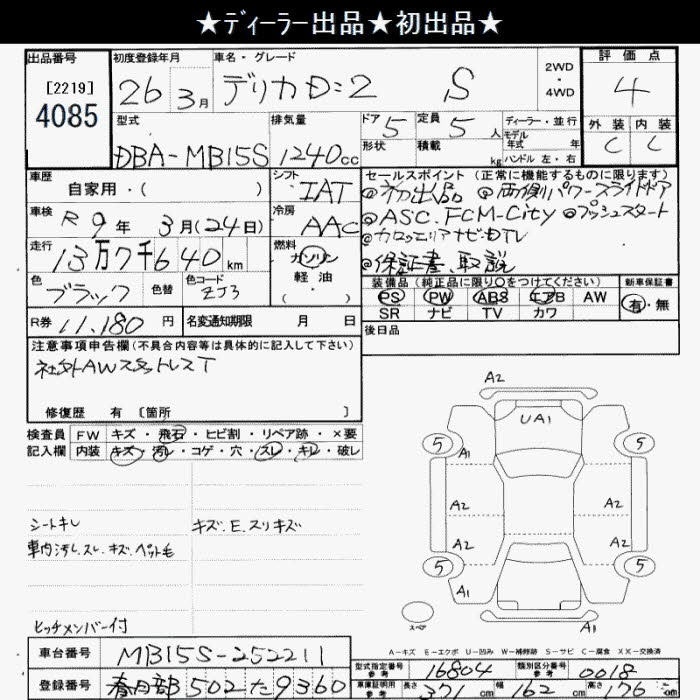 ★ディーラー出品★初出品★
出品番号 初度登録年月 車名・グレード 2WD・4WD 評価点
[2219] 26年 3月 デリカD:2 S 4
4085
型式 排気量 ドア 5 定員 5人 ディーラー・並行 外装 内装
DBA-MB15S 1240cc 形状 積載 kg モデル年式 年 C C
ハンドル 左・右
車歴 シフト セールスポイント(正常に機能するものに限ります)
自家用・( ) IAT ◎初出品 ◎両側パワースライドドア
車検 R9年 3月(24日) 冷房 AAC ◎ASC.FCM-City ◎プッシュスタート
走行 13万7千640km 燃料 ガソリン ◎カロッツェリアナビ・DTV
軽・油 ◎保証書、取説
色 ブラック 色替 色コード ZJ3 ( ・ )
装備品(純正品に限り○をつけてください) 新車保証書
PS PW ABS エアB AW 有・無
SR ナビ TV カワ
R券 11,180円 名変通知期限 月 日
後日品
注意事項申告欄(不具合内容等は具体的に記入して下さい)
社外AWスタットレスT
修復歴 有 〔箇所 〕
検査員 FW キズ・飛石・ヒビ割・リペア跡・×要
記入欄 内装 キズ・汚レ・コゲ・穴・スレ・キレ・破レ
シートキレ キズ.E.スリキズ
車内汚レ.スレ.キズ.ペット毛
ヒッチメンバー付
A2
UA1
5 5
A1
A2 A2
A2 A2
5 5
A1 A2
スペア
A1
A-キズ E-エクボ U-凹み W-補修跡 S-サビ C-腐食 XX-交換済
車台番号 MB15S-252211
型式指定番号 参考 16804 類別区分番号 参考 0018
登録番号 春日部 502 た 9360
車庫証明用 参考 長さ 371cm 幅 162cm 高さ